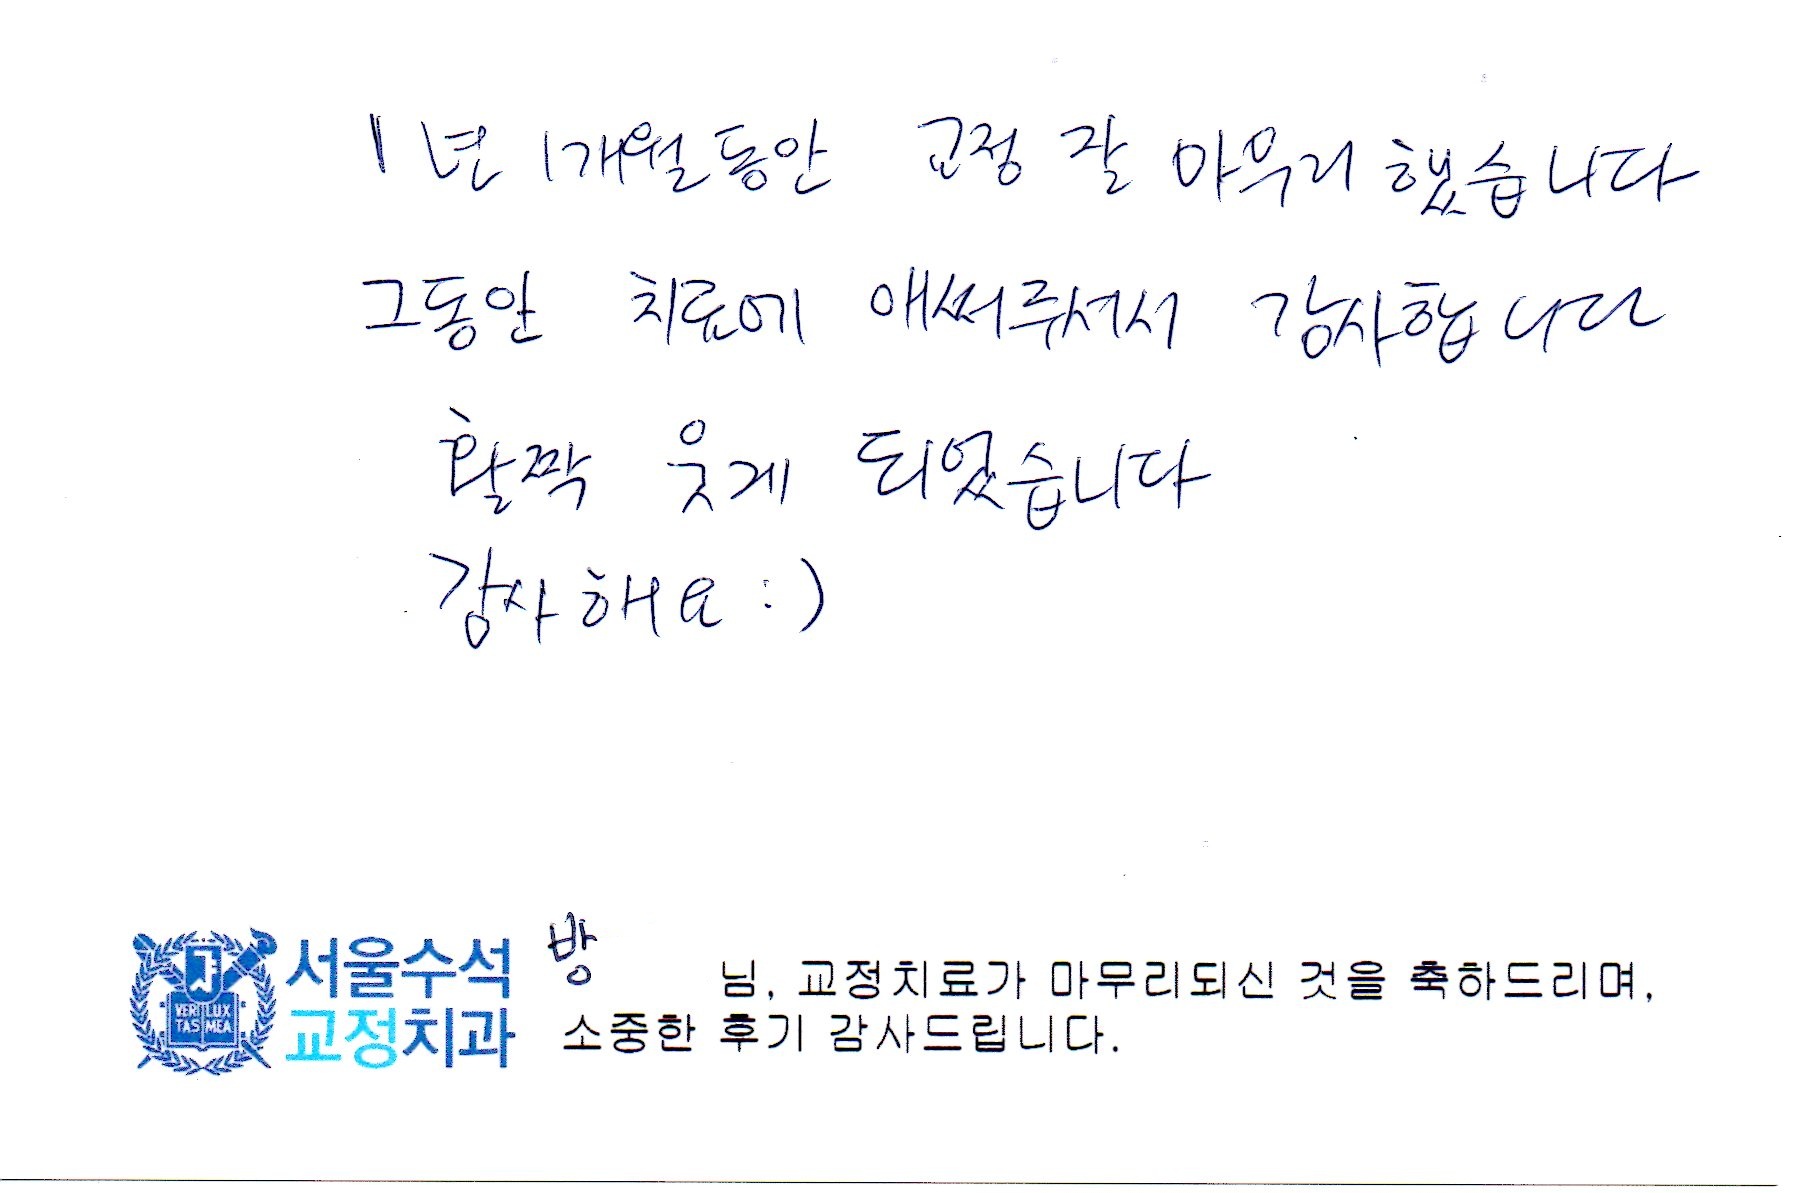 1년 1개월동안 교정 잘 마무리 했습니다
그동안 치료에 애써주셔서 감사합니다
활짝 웃게 되었습니다
감사해요 :)
서울수석
교정치과
VERI LUX
TAS MEA
방 님, 교정치료가 마무리되신 것을 축하드리며,
소중한 후기 감사드립니다.